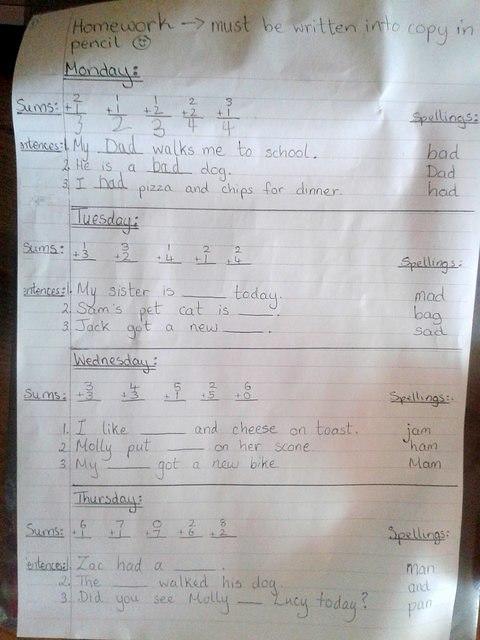 Homework → must be written into copy in
pencil ☺
Monday:
Sums: 2 +1 3   1 +1 2   1 +2 3   2 +2 4   3 +1 4
Spellings:
entences: 1. My Dad walks me to school. bad
2. He is a bad dog. Dad
3. I had pizza and chips for dinner. had
Tuesday:
Sums: 1 +3   3 +2   1 +4   2 +1   2 +4
Spellings:
entences: 1. My sister is ____ today. mad
2. Sam's pet cat is ____. bag
3 Jack got a new ____. sad
Wednesday:
Sums: 3 +3   4 +3   5 +1   2 +5   6 +0
Spellings:
1. I like ____ and cheese on toast. jam
2 Molly put ____ on her scone ham
3 My ____ got a new bike. Mam
Thursday:
Sums: 6 +1   7 +1   0 +7   2 +6   8 +2
Spellings:
entences: 1. Zac had a ____. man
2. The ____ walked his dog. and
3. Did you see Molly ___ Lucy today? pan